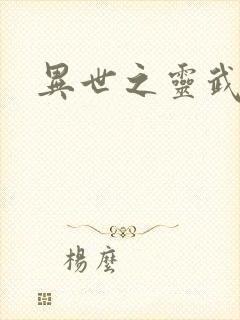 異世之靈武
楊麼